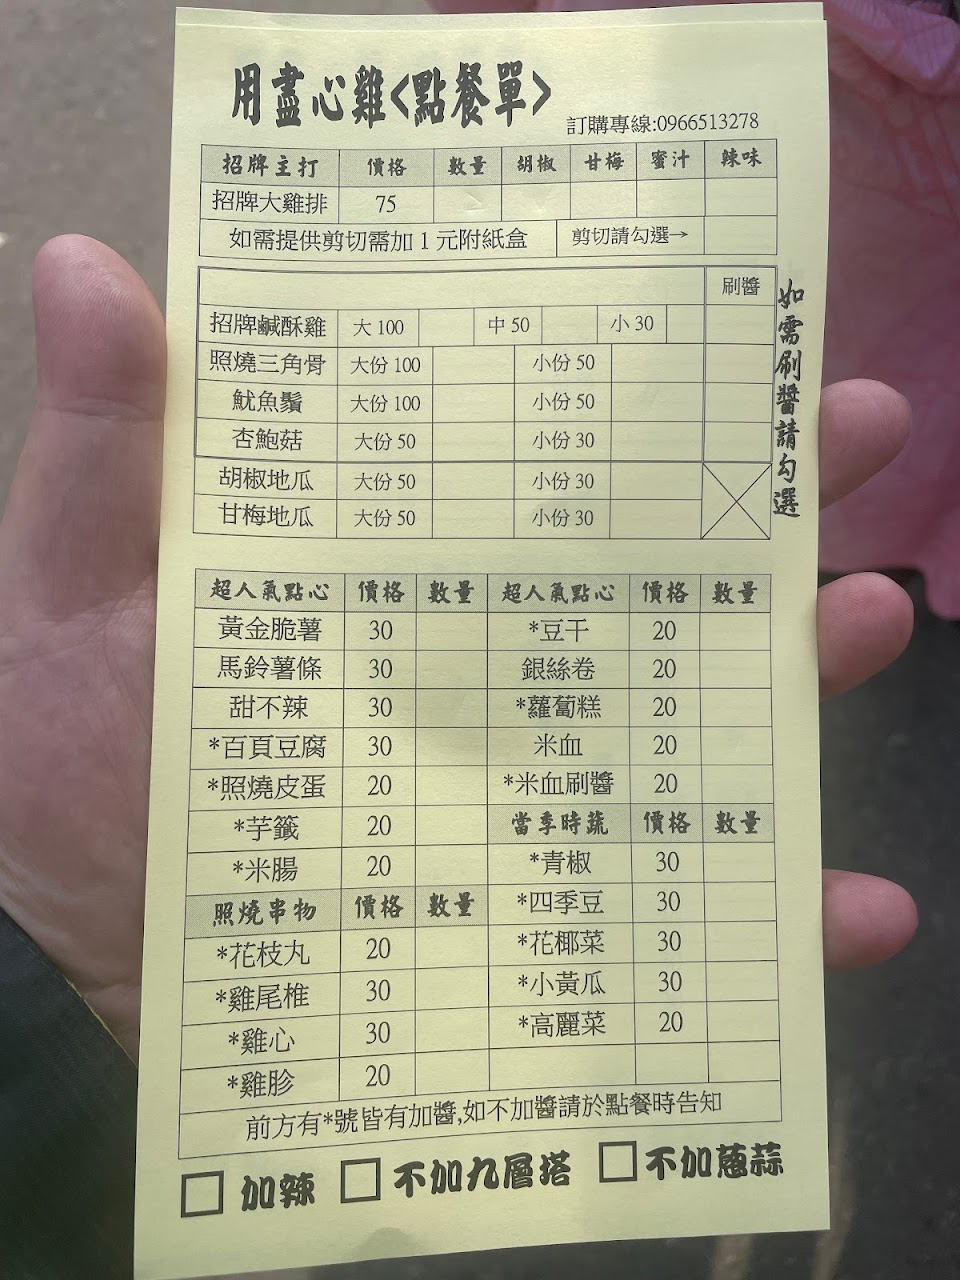 用盡心雞<點餐單>
訂購專線:0966513278
招牌主打 價格 數量 胡椒 甘梅 蜜汁 辣味
招牌大雞排 75
如需提供剪切需加 1 元附紙盒 剪切請勾選→
刷醬
招牌鹹酥雞 大 100 中 50 小 30
照燒三角骨 大份 100 小份 50
魷魚鬚 大份 100 小份 50
杏鮑菇 大份 50 小份 30
胡椒地瓜 大份 50 小份 30
甘梅地瓜 大份 50 小份 30
如需刷醬請勾選
超人氣點心 價格 數量 超人氣點心 價格 數量
黃金脆薯 30 *豆干 20
馬鈴薯條 30 銀絲卷 20
甜不辣 30 *蘿蔔糕 20
*百頁豆腐 30 米血 20
*照燒皮蛋 20 *米血刷醬 20
*芋籤 20 當季時蔬 價格 數量
*米腸 20 *青椒 30
照燒串物 價格 數量 *四季豆 30
*花枝丸 20 *花椰菜 30
*雞尾椎 30 *小黃瓜 30
*雞心 30 *高麗菜 20
*雞胗 20
前方有*號皆有加醬,如不加醬請於點餐時告知
加辣 不加九層塔 不加蔥蒜